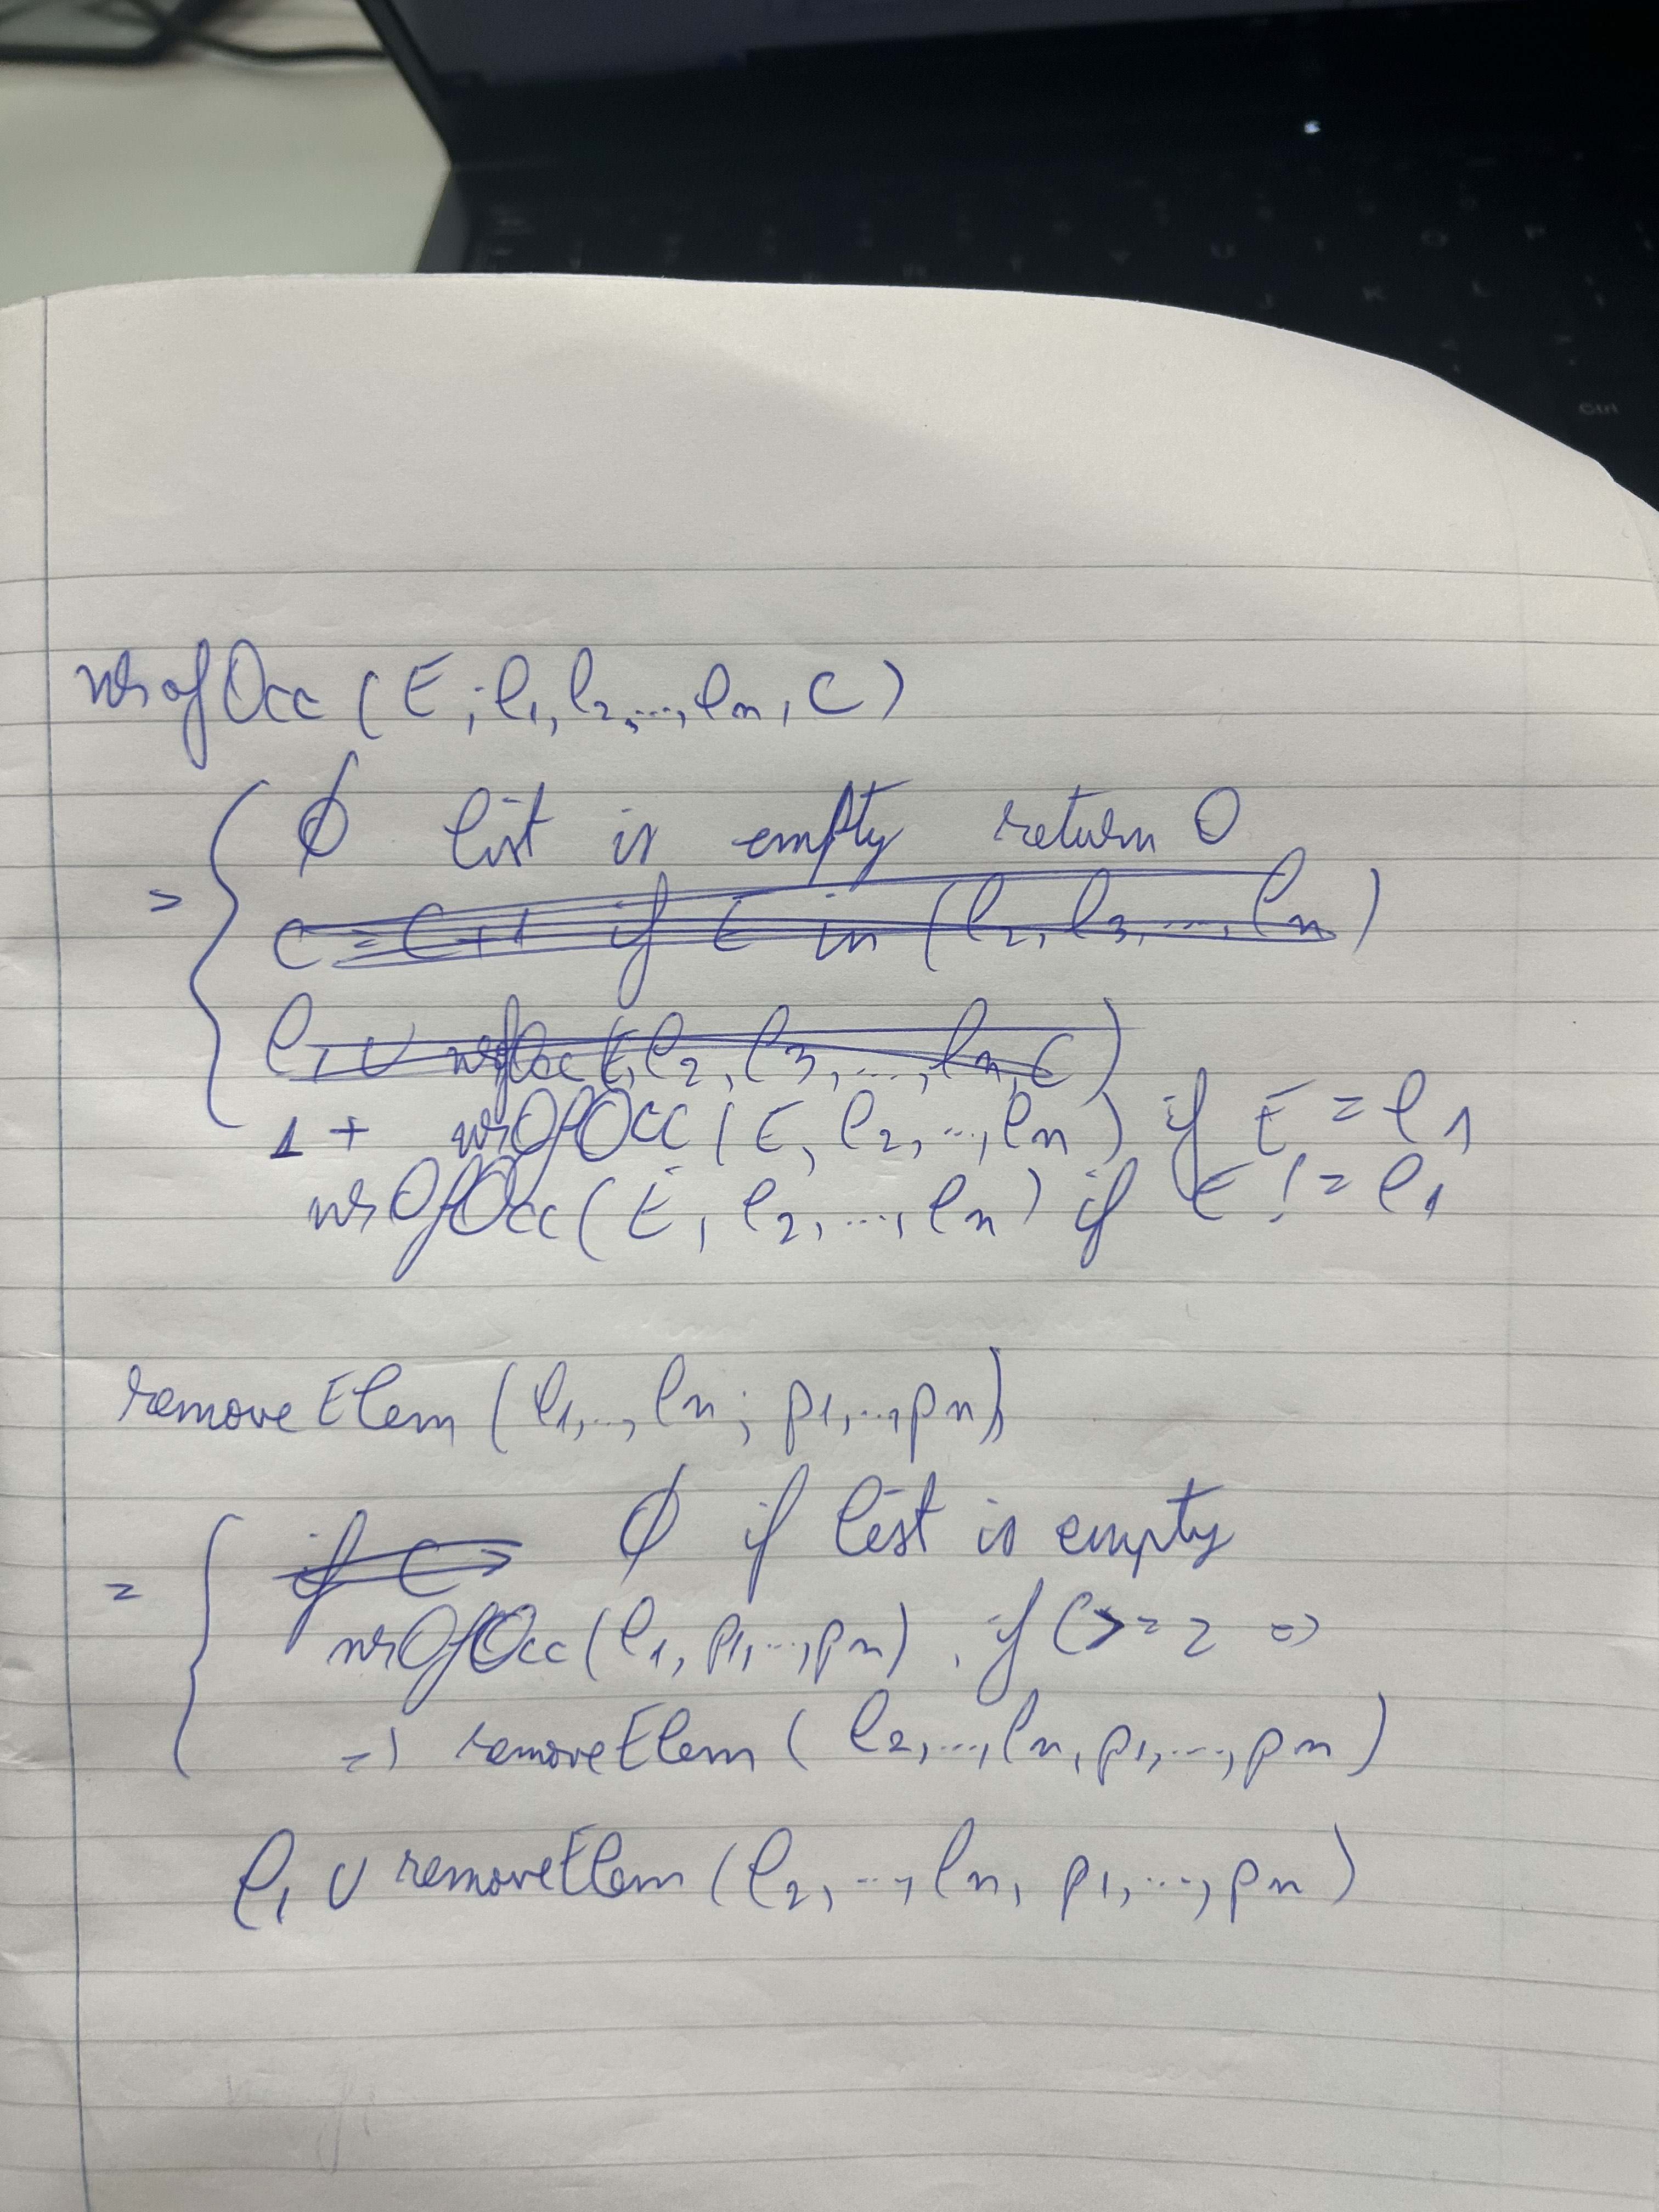 nrofOcc (E; l1, l2, ..., ln, C)
∅ list is empty return 0
=
C = C+1 if E in (l2, l3, ..., ln)
l1 ∪ nrofOcc(E, l2, l3, ..., ln, C)
1 + nrOfOcc (E, l2, ..., ln) if E = l1
nrOfOcc (E, l2, ..., ln) if E != l1
removeElem (l1, .., ln; p1, .., pn)
if C > ∅ if list is empty
=
nrOfOcc (l1, p1, ..., pn), if C >= 2 =>
=> removeElem ( l2, ..., ln, p1, ..., pn)
l1 ∪ removeElem (l2, ..., ln, p1, ..., pn)
Ctrl